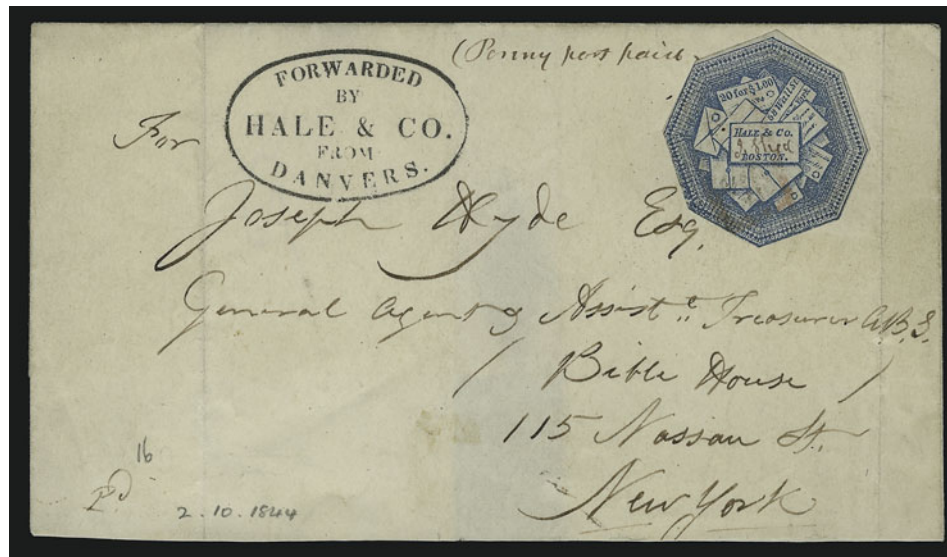 (Penny post paid
FORWARDED
BY
HALE & CO.
FROM
DANVERS.
20 for $1.00
Wall St
HALE & Co.
BOSTON.
For
Joseph Hyde Esq.
General Agent & Assist.t Treasurer A.B.S.
( Bible House )
115 Nassau St.
New York
16
Pd
2.10.1844